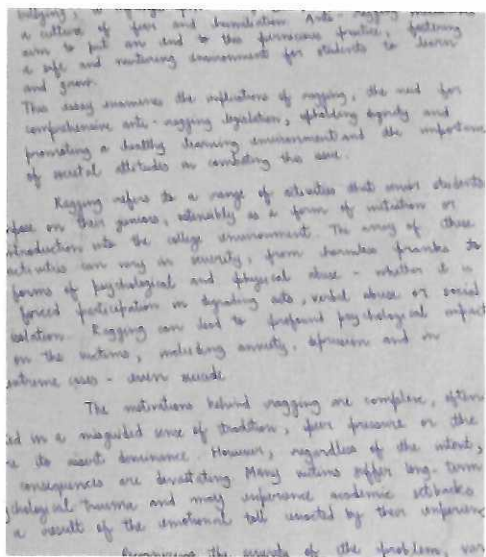 bullying,
a culture of fear and humiliation. Anti-ragging measures
aim to put an end to this pernicious practice, fostering
a safe and nurturing environment for students to learn
and grow.
This essay examines the implications of ragging, the need for
comprehensive anti-ragging legislation, upholding dignity and
promoting a healthy learning environment and the importan
of societal attitudes in combating this issue.
Ragging refers to a range of activities that senior students
on their juniors, ostensibly as a form of initiation or
ntroduction into the college environment. The array of these
activities can vary in severity, from harmless pranks to
forms of psychological and physical abuse - whether it is
forced participation in degrading acts, verbal abuse or social
isolation. Ragging can lead to profound psychological impact
on the victims, including anxiety, and in
extreme cases - even suicide.
The motivations behind ragging are complex, often
ed in a misguided sense of tradition, peer pressure or the
to assert dominance. However, regardless of the intent,
consequences are devastating. Many victims suffer long-term
ychological trauma and may experience academic setbacks
a result of the emotional toll exacted by their experienc
Recognizing the severity of the problem,